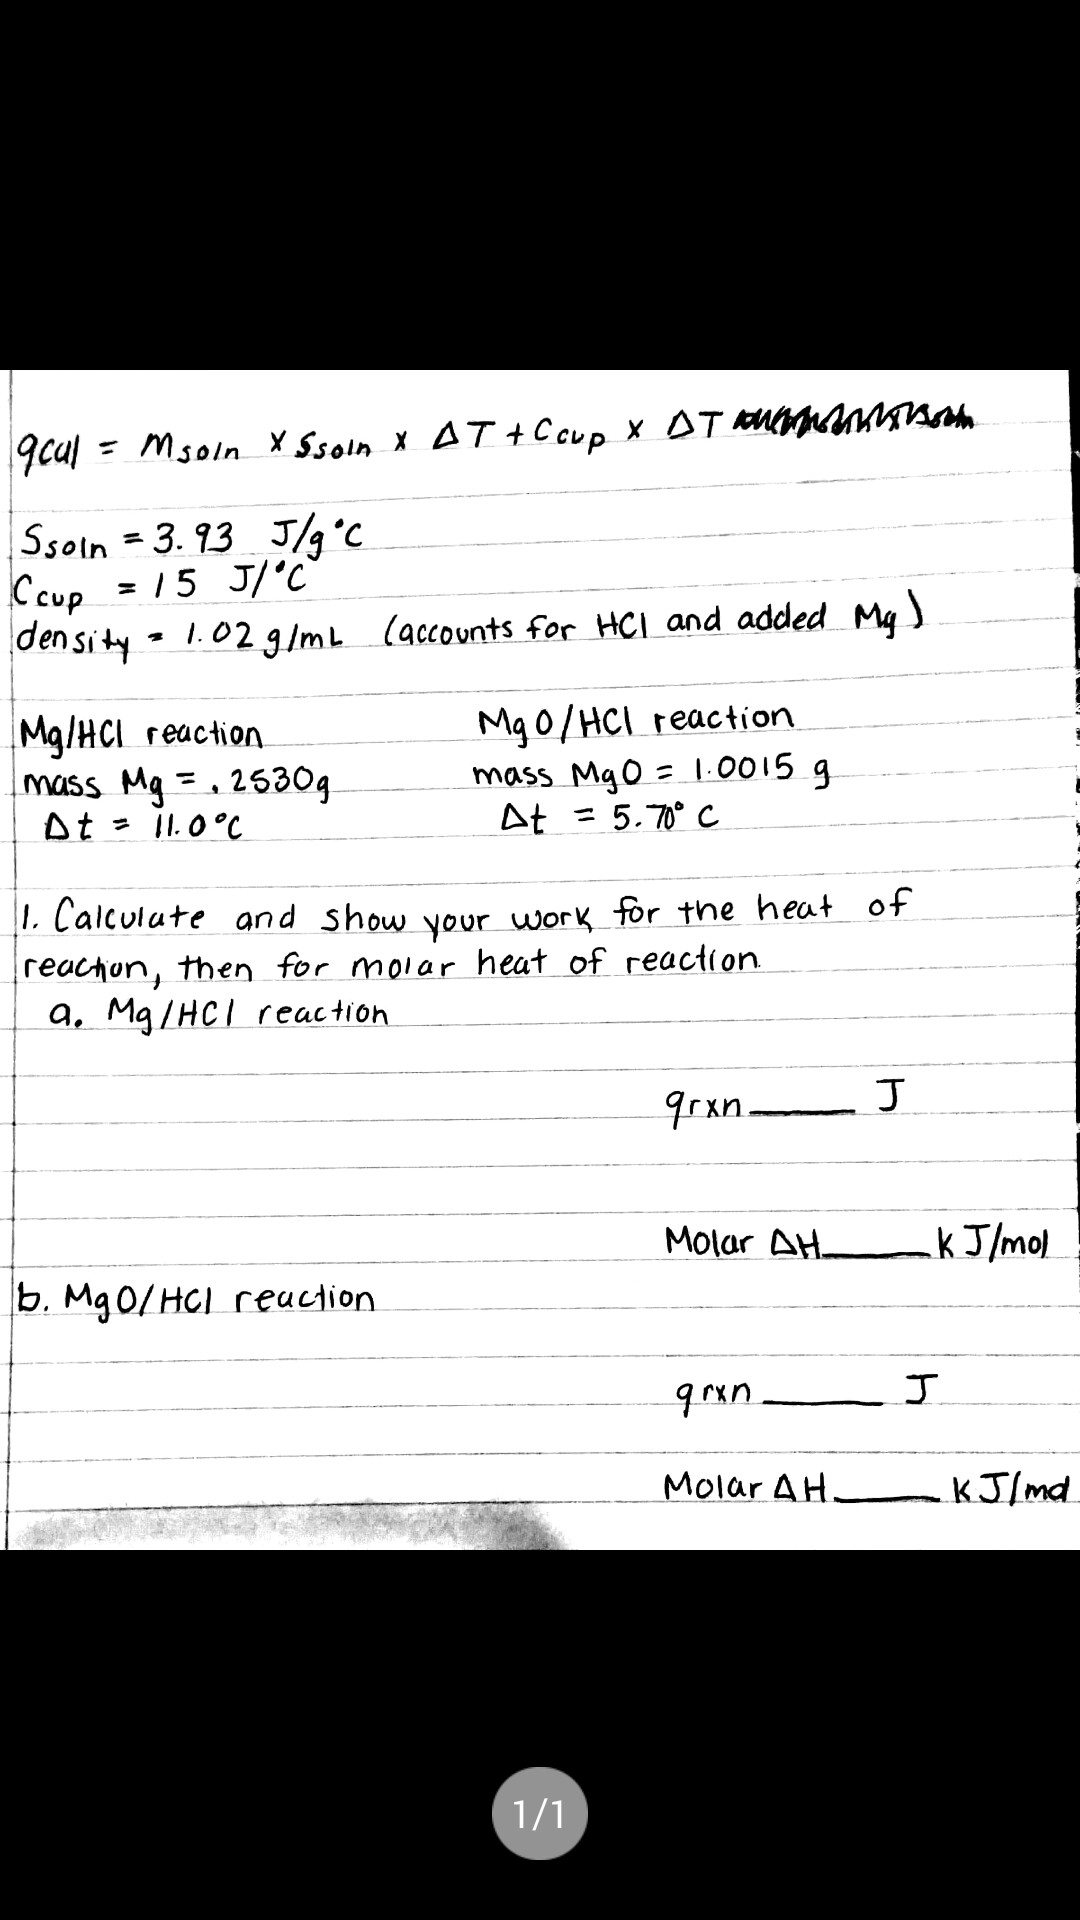 qcal = Msoln x Ssoln x ΔT + Ccup x ΔT
Ssoln = 3.93 J/g°C
Ccup = 15 J/°C
density = 1.02 g/mL (accounts for HCl and added Mg)
Mg/HCl reaction
mass Mg = .2530g
Δt = 11.0°C
MgO/HCl reaction
mass MgO = 1.0015 g
Δt = 5.70° C
1. Calculate and show your work for the heat of
reaction, then for molar heat of reaction.
a. Mg/HCl reaction
qrxn ____ J
Molar ΔH ____ kJ/mol
b. MgO/HCl reaction
qrxn ____ J
Molar ΔH ____ kJ/mol
1/1